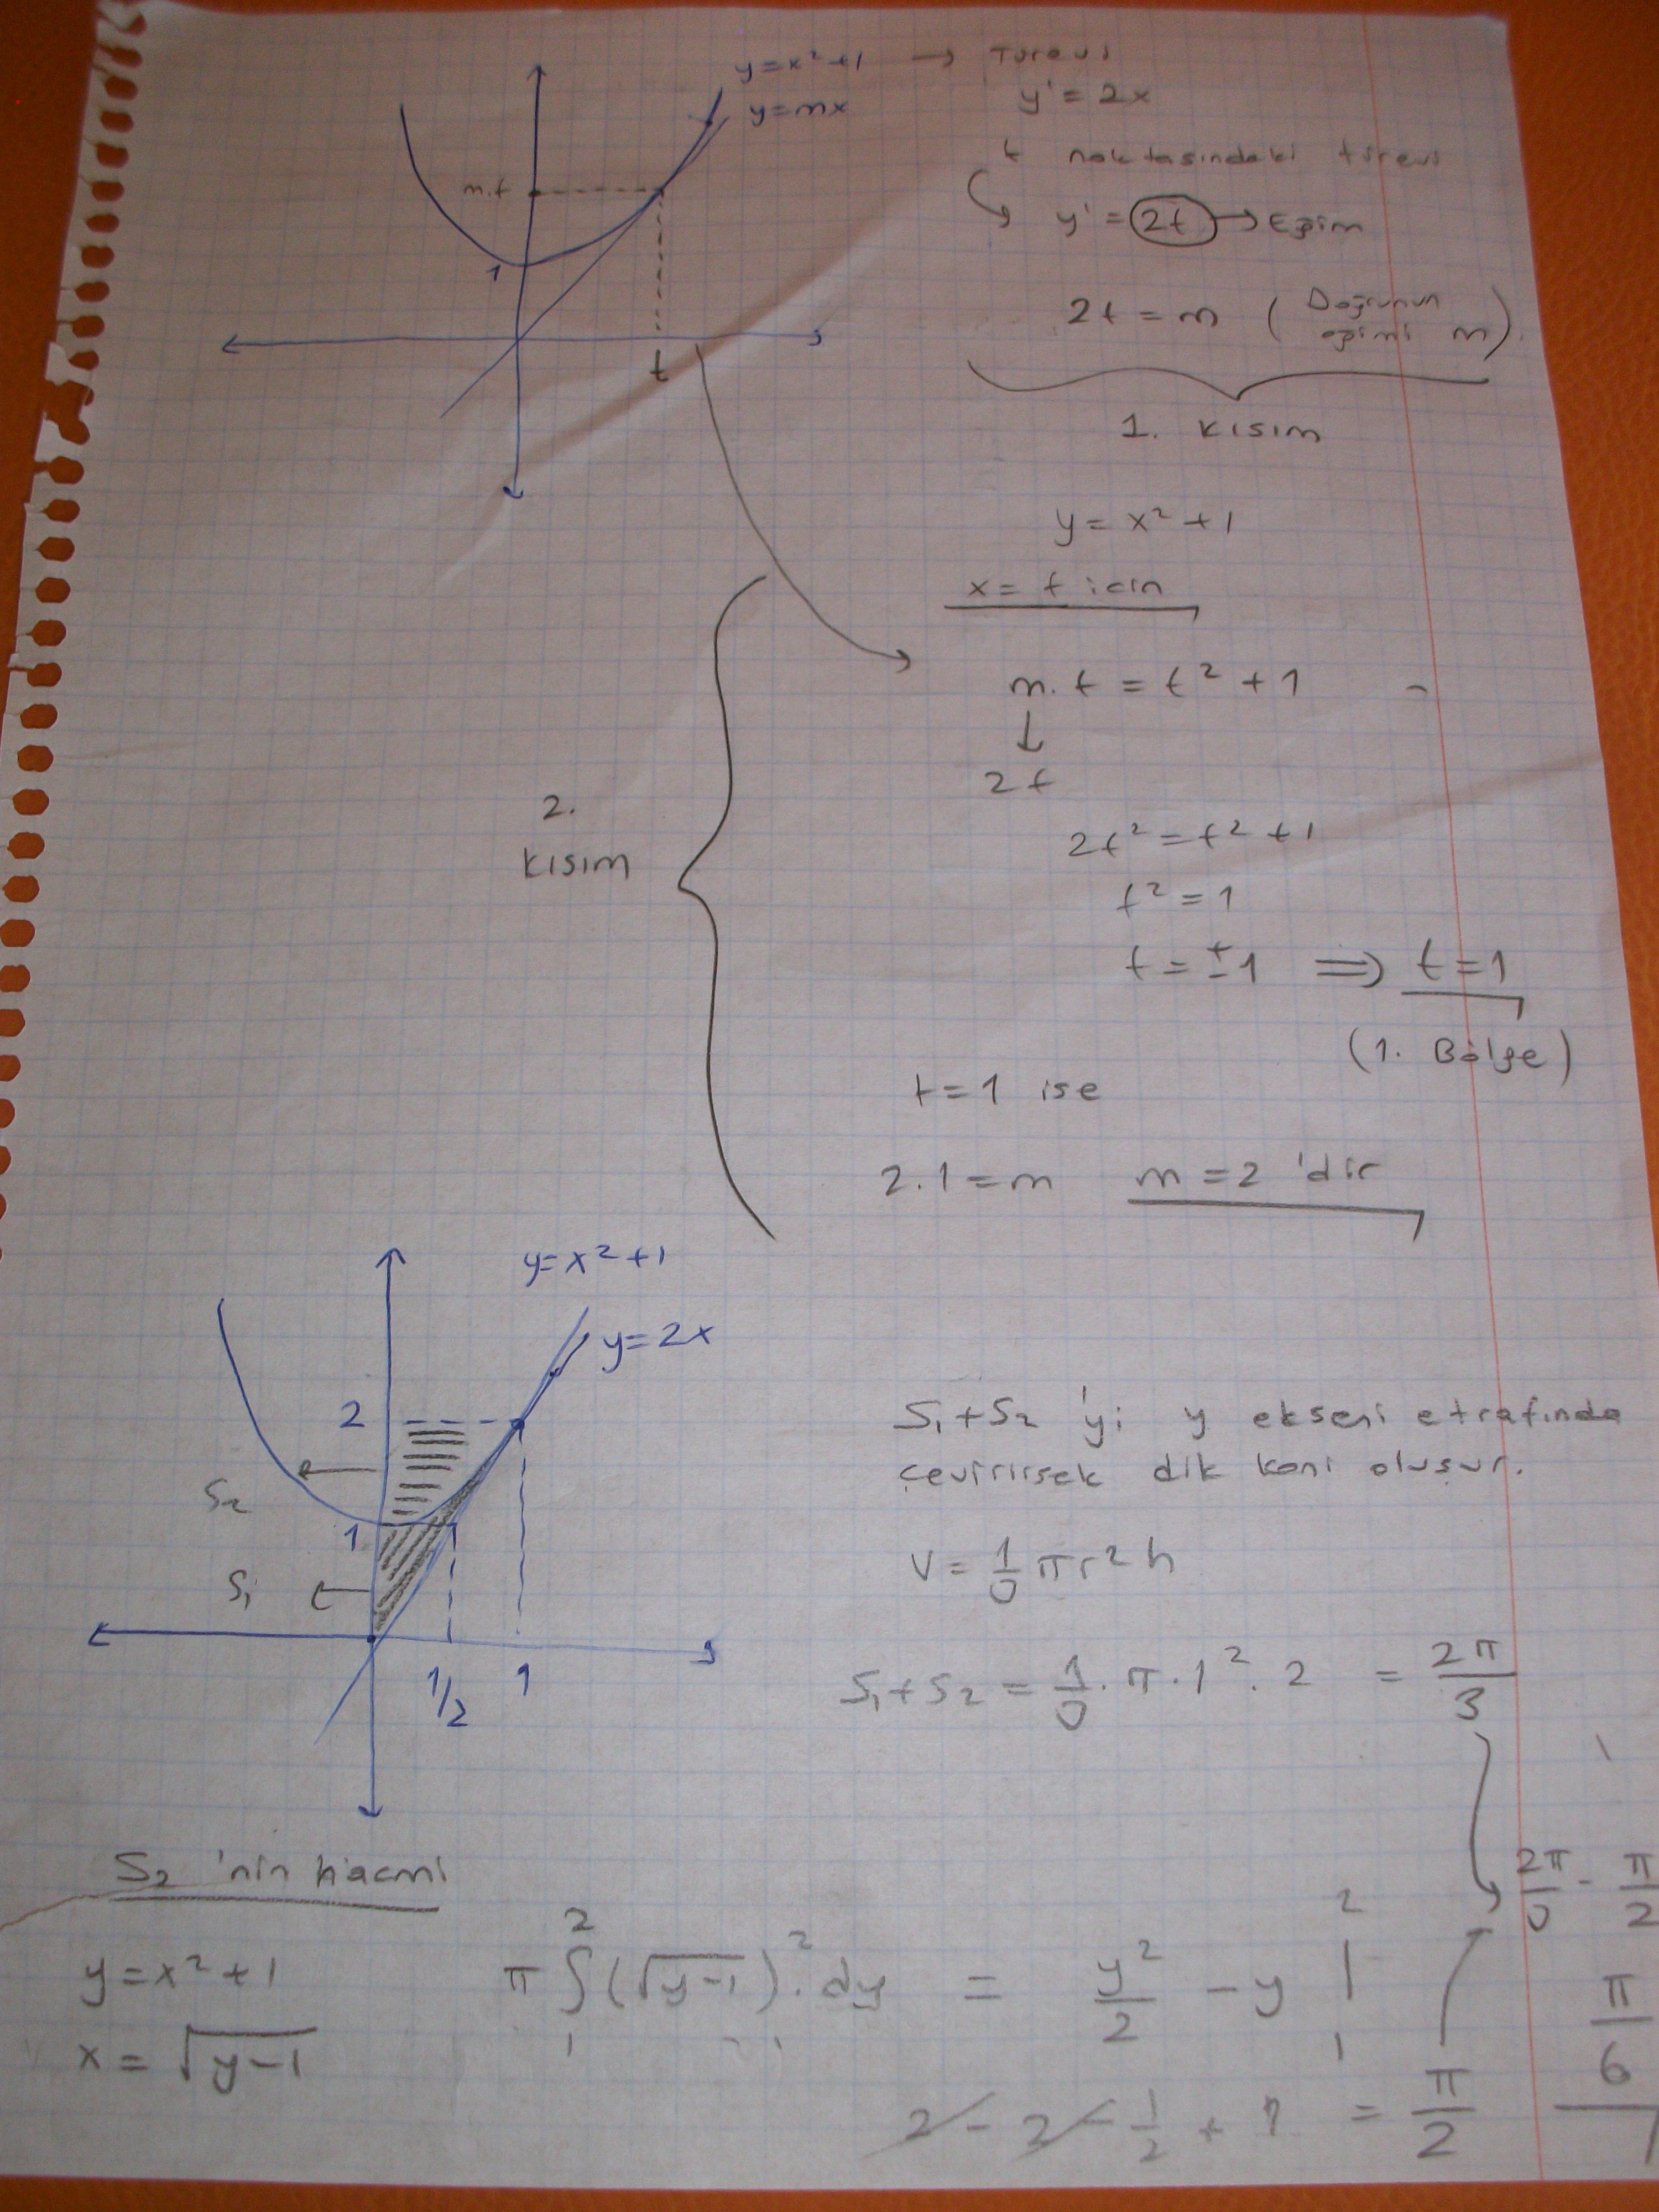 y=x²+1 → Türevi
y=mx
y'=2x
t noktasındaki türevi
y' = 2t → Eğim
m.t
1
t
2t = m ( Doğrunun
eğimi m).
1. KISIM
y = x² + 1
x = t için
m.t = t² + 1
2t
2.
KISIM
2t² = t² + 1
t² = 1
t = ±1 ⟹ t = 1
(1. Bölge)
t = 1 ise
2.1 = m m = 2 'dir
y=x²+1
y=2x
2
S₂
1
S₁
1/2 1
S₁+S₂ 'yi y ekseni etrafında
çevirirsek dik koni oluşur.
V = 1/3 πr²h
S₁+S₂ = 1/3 . π . 1² . 2 = 2π/3
S₂ 'nin hacmi
2π/3 - π/2
y = x² + 1
x = √(y-1)
π ∫₁² (√(y-1))² . dy = y²/2 - y |₁²
2 - 2 - 1/2 + 1 = π/2
π/6